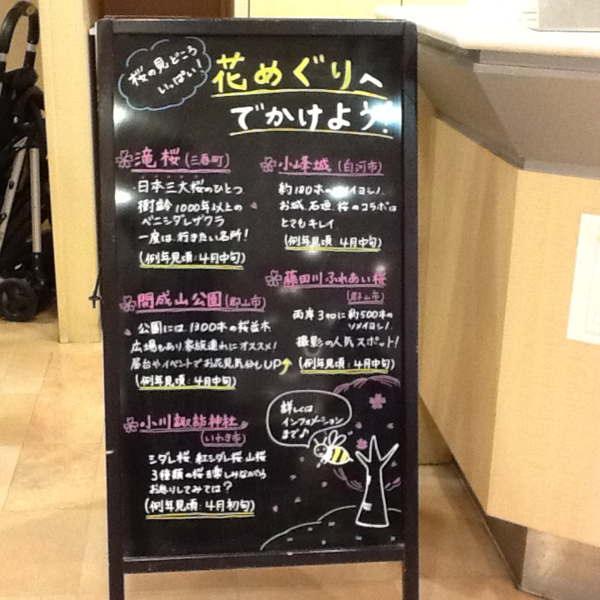 桜の見どころ
いっぱい!
花めぐりへ
でかけよう!
滝桜(三春町)
・日本三大桜のひとつ
樹齢1000年以上の
ベニシダレザクラ
一度は行きたい名所!
(例年見頃:4月中旬)
開成山公園(郡山市)
公園には1300本の桜並木
広場もあり家族連れにオススメ!
屋台やイベントでお花見気分もUP↑
(例年見頃:4月中旬)
小川諏訪神社
(いわき市)
シダレ桜 紅シダレ桜 山桜
3種類の桜を楽しみながら
お参りしてみては?
(例年見頃:4月初旬)
小峰城(白河市)
約180本のソメイヨシノ
お城、石垣、桜のコラボは
とてもキレイ
(例年見頃 4月中旬)
藤田川ふれあい桜
(郡山市)
両岸3kmに約500本の
ソメイヨシノ!
撮影の人気スポット!
(例年見頃:4月中旬)
詳しくは
インフォメーション
まで♪